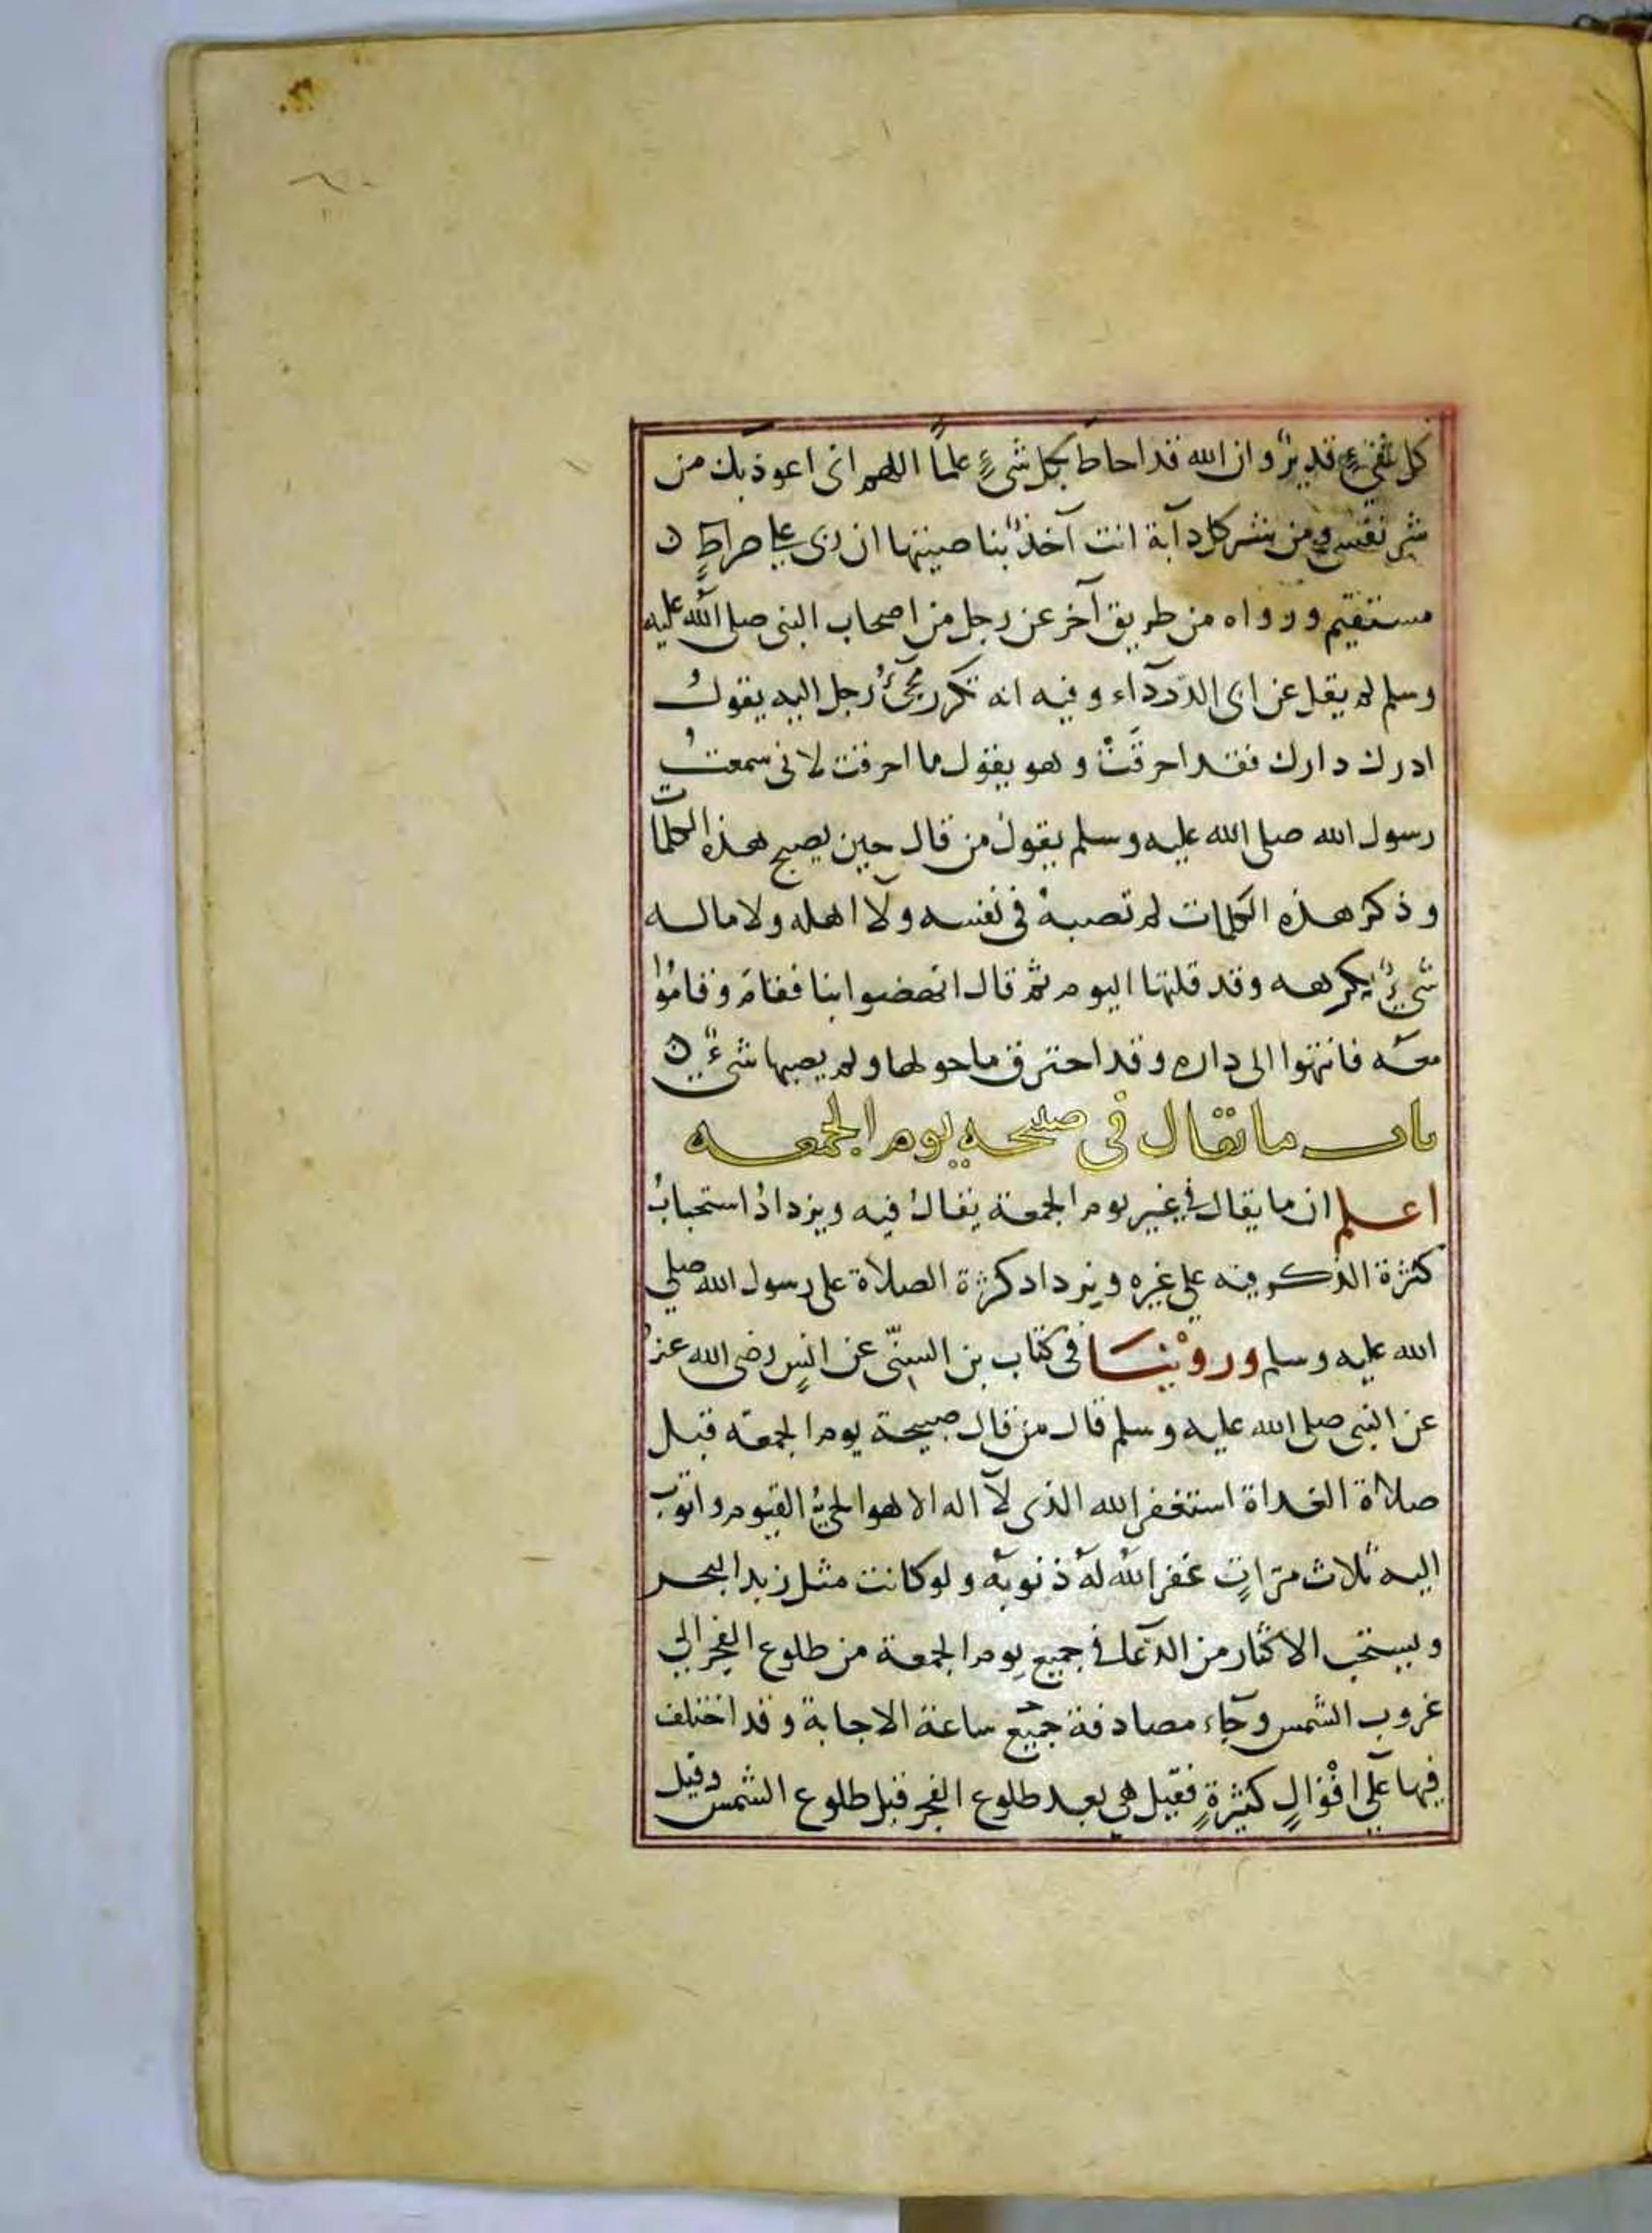 كل شيءٍ قديرٌ وان الله قد احاط بكل شيءٍ علماً اللهم انى اعوذ بك من
شر نفسى ومن شر كل دآبة انت آخذٌ بناصيتها ان ربى على صراطٍ
مستقيم ورواه من طريق آخر عن رجل من اصحاب النبى صلى الله عليه
وسلم لم يقل عن ابى الدردآء وفيه انه تكرر مجئُ رجل اليه يقولُ
ادرك دارك فقد احرقَتْ وهو يقول ما احرقت لانى سمعتُ
رسول الله صلى الله عليه وسلم يقول من قال حين يصبح هذه الكلمات
وذكر هذه الكلمات لم تصبهْ فى نفسه ولا اهله ولا ماله
شيءٌ يكرهه وقد قلتها اليوم ثم قال انهضوا بنا فقامَ وقامُوا
معه فانتهوا الى داره وقد احترق ما حولها ولم يصبها شىءٌ
باب ما يقال فى صبيحه يوم الجمعه
اعلم ان ما يقال في غير يوم الجمعة يقالُ فيه ويزدادُ استحبابُ
كثرة الذكر فيه على غيره ويزداد كثرة الصلاة على رسول الله صلي
الله عليه وسلم وروْينَا فى كتاب بن السنّى عن انسٍ رضى الله عنهُ
عن النبى صلى الله عليه وسلم قال من قال صبيحة يوم الجمعه قبل
صلاة الغداة استغفر الله الذى لآ اله الا هو الحيُّ القيوم واتوب
اليه ثلاث مرّاتٍ غفر اللهُ لهُ ذنوبهُ ولو كانت مثل زبد البحر
ويستحب الاكثار من الدّعاء في جميع يوم الجمعة من طلوع الفجر الي
غروب الشمس رجآء مصادفة جميع ساعة الاجابة وقد اختلف
فيها عَلَى اقْوالٍ كثيرةٍ فقيل هي بعد طلوع الفجر قبل طلوع الشمس وقيل